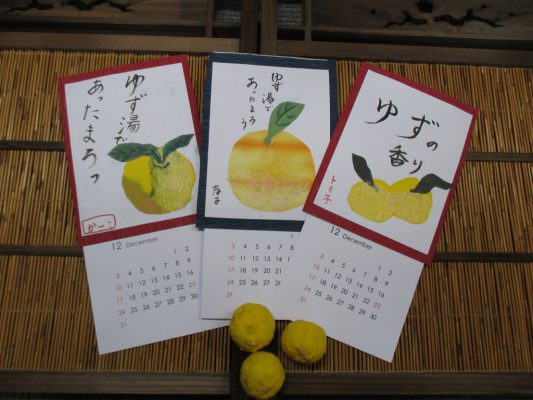 ゆず湯で
あったまろっ
かーこ
12 December
1 2
3 4 5 6 7 8 9
10 11 12 13 14 15 16
17 18 19 20 21 22 23
24 25 26 27 28 29 30
31
ゆず湯で
あったまろう
孝子
1
3 4 5 6 7 8
10 11 12 13 14 1
17 18 19 20 21 2
24 25 26 27 28
31
ゆずの
香り
トミ子
12 December
1 2
3 4 5 6 7 8 9
10 11 12 13 14 15 16
17 18 19 20 21 22 23
24 25 26 27 28 29 30
31